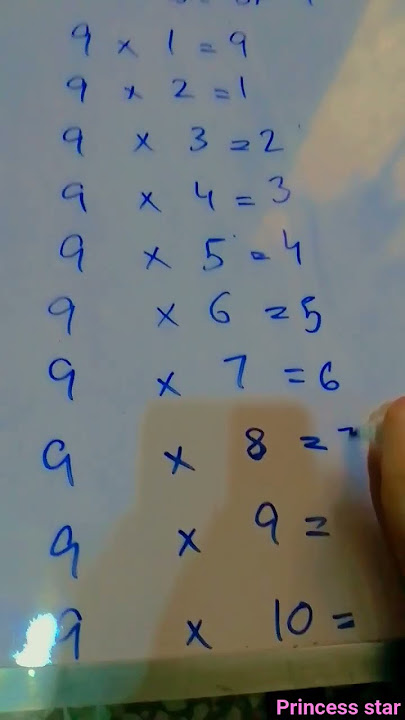 9 x 1 = 9
9 x 2 = 1
9 x 3 = 2
9 x 4 = 3
9 x 5 = 4
9 x 6 = 5
9 x 7 = 6
9 x 8 =
9 x 9 =
9 x 10 =
Princess star